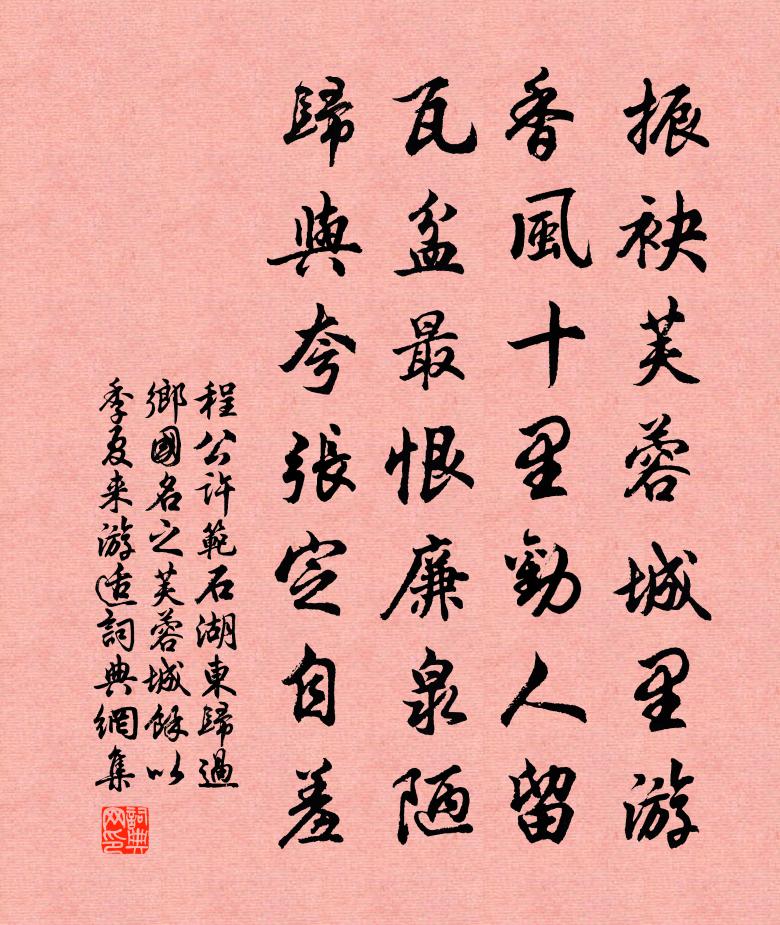 振袂芙蓉城里游
香風十里勸人留
瓦盆最恨廉泉陋
歸與夸張定自羞
程公許範石湖東歸過
鄉國名之芙蓉城餘以
季夏来游适詞典網集
詞典网印